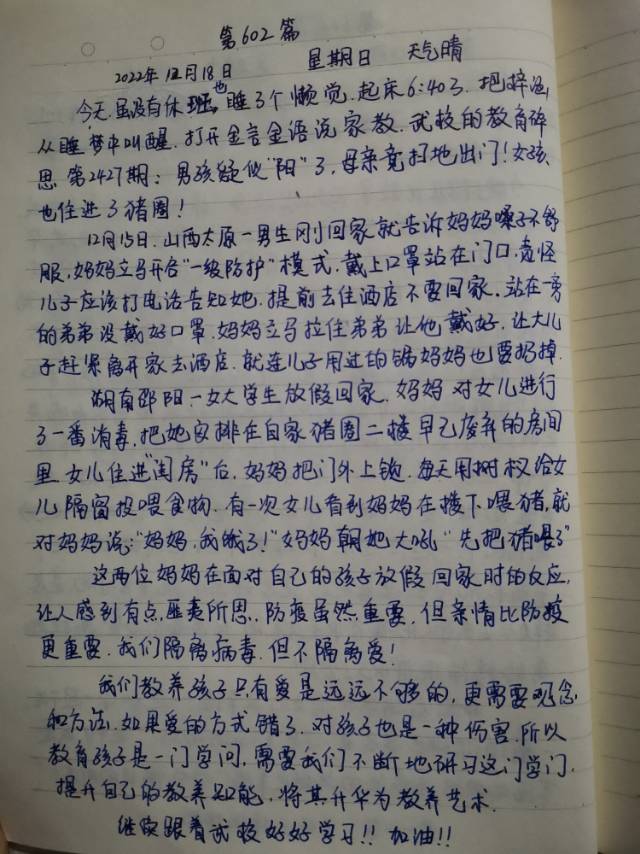 第602篇
2022年12月18日 星期日 天气晴
今天虽没有休班,也睡了个懒觉.起床6:40了.把梓涵
从睡梦中叫醒.打开金言金语说家教.武校的教育碎
思第2427期:男孩疑似"阳"了,母亲竟扫地出门!女孩
也住进了猪圈!
12月15日.山西太原一男生刚回家就告诉妈妈嗓子不舒
服,妈妈立马开启"一级防护"模式.戴上口罩站在门口,责怪
儿子应该打电话告知她.提前去住酒店不要回家.站在一旁
的弟弟没戴好口罩.妈妈立马拉住弟弟让他戴好.让大儿
子赶紧离开家去酒店.就连儿子用过的锅妈妈也要扔掉.
湖南邵阳一女大学生放假回家.妈妈对女儿进行
了一番消毒.把她安排在自家猪圈二楼早已废弃的房间
里.女儿住进"闺房"后.妈妈把门外上锁.每天用树杈给女
儿隔窗投喂食物.有一次女儿看到妈妈在楼下喂猪,就
对妈妈说:"妈妈.我饿了!"妈妈朝她大吼"先把猪喂了"
这两位妈妈在面对自己的孩子放假回家时的反应,
让人感到有点匪夷所思.防疫虽然重要.但亲情比防疫
更重要.我们隔离病毒.但不隔离爱!
我们教养孩子只有爱是远远不够的,更需要观念
和方法.如果爱的方式错了.对孩子也是一种伤害.所以
教育孩子是一门学问,需要我们不断地研习这门学门.
提升自己的教养知能,将其升华为教养艺术.
继续跟着武校好好学习!!加油!!